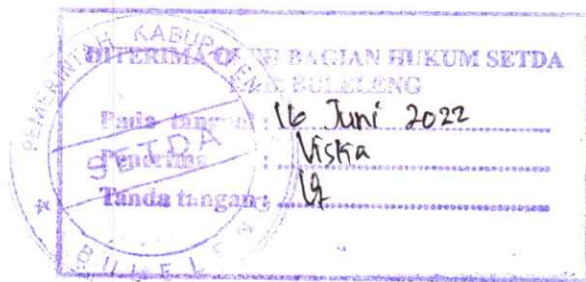 DITERIMA OLEH BAGIAN HUKUM SETDA
KAB. BULELENG
Pada tanggal : 16 Juni 2022
Penerima : Viska
Tanda tangan :
PEMERINTAH KABUPATEN
SETDA
BULELENG